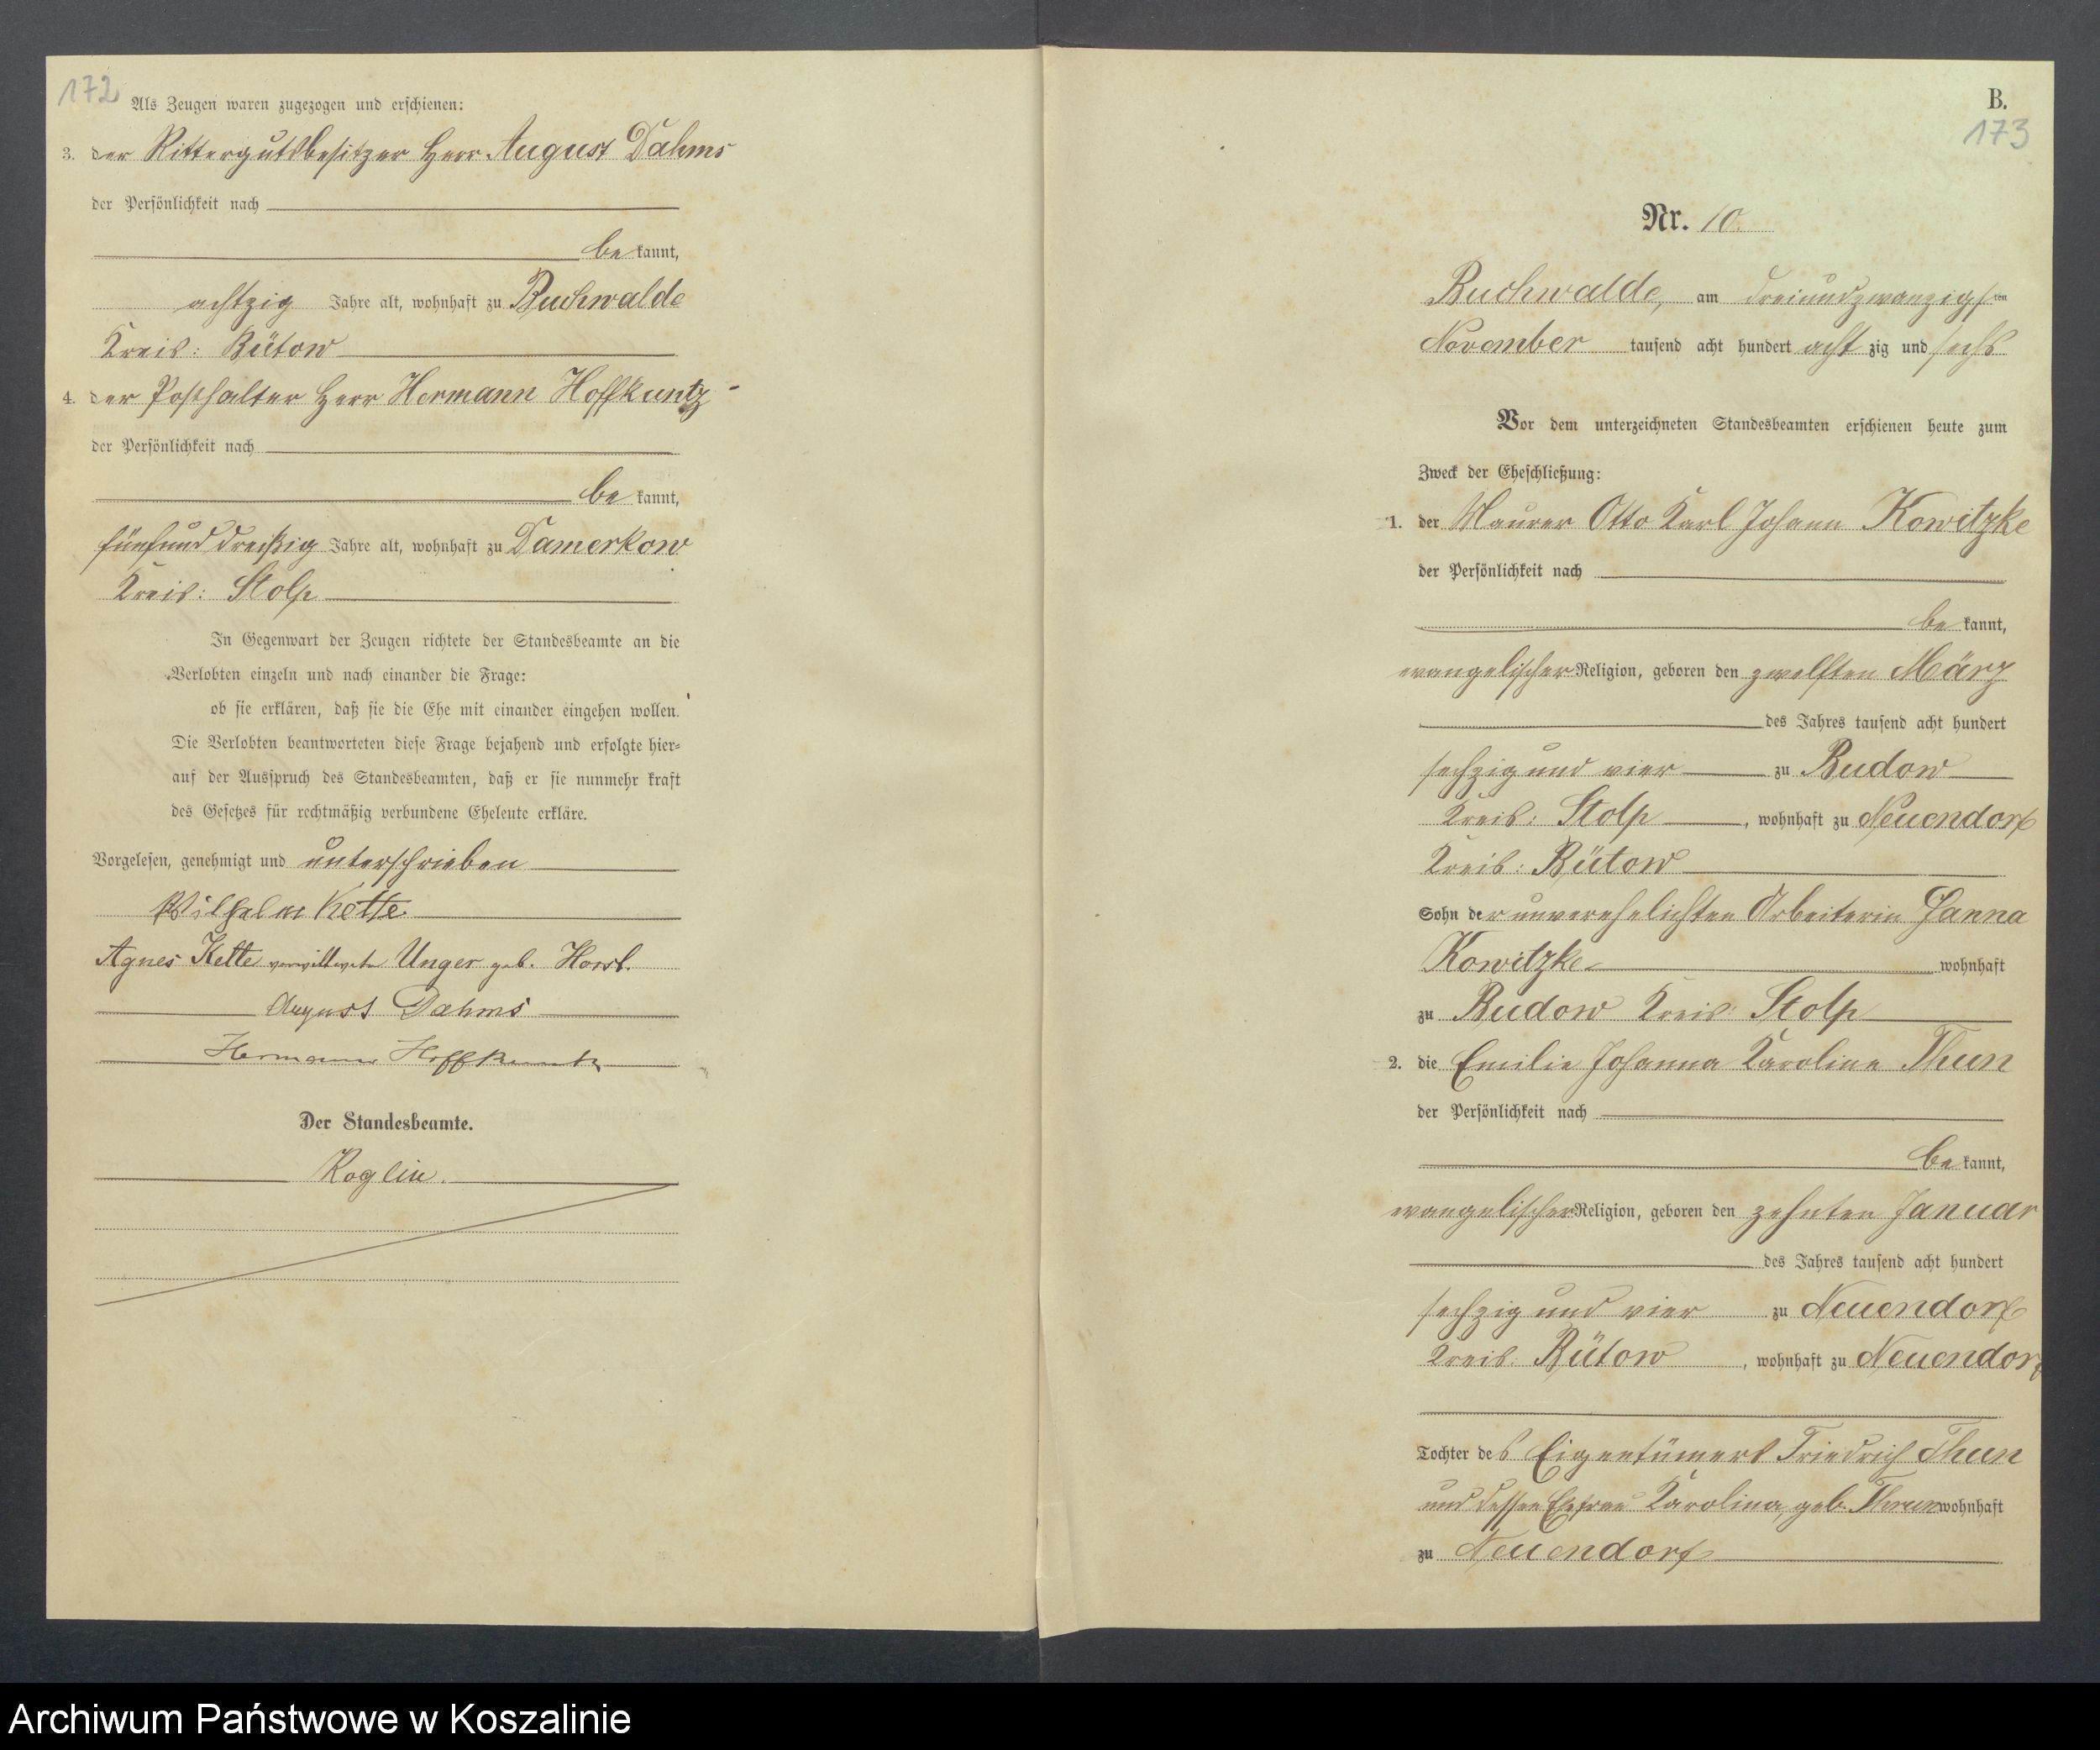 172
Als Zeugen waren zugezogen und erschienen:
3. der Rittergutsbesitzer Herr August Dahms
der Persönlichkeit nach
be kannt,
achtzig Jahre alt, wohnhaft zu Buchwalde
Kreis: Bütow
4. der Posthalter Herr Hermann Hoffkuntz
der Persönlichkeit nach
be kannt,
fünfund dreißig Jahre alt, wohnhaft zu Damerkow
Kreis: Stolp
In Gegenwart der Zeugen richtete der Standesbeamte an die
Verlobten einzeln und nach einander die Frage:
ob sie erklären, daß sie die Ehe mit einander eingehen wollen.
Die Verlobten beantworteten diese Frage bejahend und erfolgte hier=
auf der Ausspruch des Standesbeamten, daß er sie nunmehr kraft
des Gesetzes für rechtmäßig verbundene Eheleute erkläre.
Vorgelesen, genehmigt und unterschrieben
Wilhelm Kette
Agnes Kette verwittwete Unger geb.
August Dahms
Hermann Hoffkuntz
Der Standesbeamte.
Koglin.
B.
173
Nr. 10.
Buchwalde, am dreiundzwanzigsten
November tausend acht hundert acht zig und sechs
Vor dem unterzeichneten Standesbeamten erschienen heute zum
Zweck der Eheschließung:
1. der Maurer Otto Karl Johann Kowitzke
der Persönlichkeit nach
be kannt,
evangelischer Religion, geboren den zwölften März
des Jahres tausend acht hundert
sechzig und vier zu Budow
Kreis: Stolp, wohnhaft zu Neuendorf
Kreis: Bütow
Sohn der unverehelichten Arbeiterin Hanna
Kowitzke wohnhaft
zu Budow Kreis: Stolp
2. die Emilie Johanna Karoline Thun
der Persönlichkeit nach
be kannt,
evangelischer Religion, geboren den zehnten Januar
des Jahres tausend acht hundert
sechzig und vier zu Neuendorf
Kreis: Bütow, wohnhaft zu Neuendorf
Tochter des Eigentümers Friedrich Thun
und dessen Ehefrau Karolina, geb. wohnhaft
zu Neuendorf
Archiwum Państwowe w Koszalinie